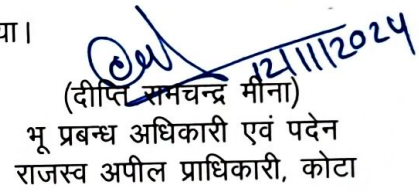 या।
12/11/2024
(दीप्ति रामचन्द्र मीना)
भू प्रबन्ध अधिकारी एवं पदेन
राजस्व अपील प्राधिकारी, कोटा